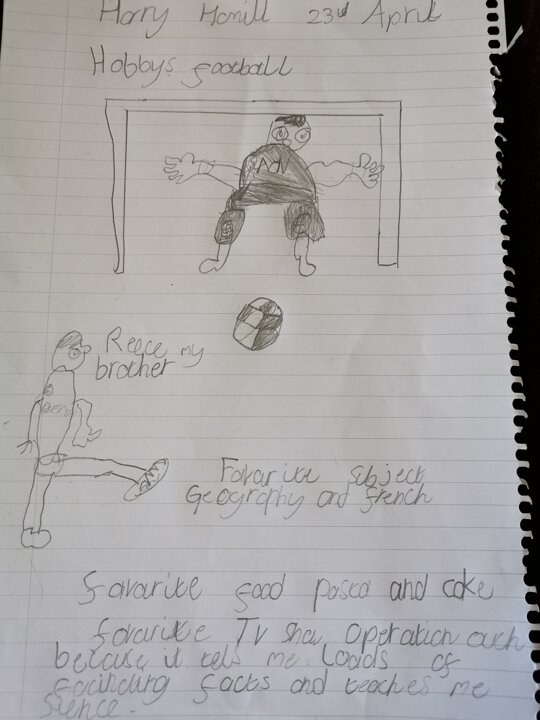 Harry Hamill 23rd April
Hobbys football
Reece my
brother
Favarite subject
Geography and french
favarite food pasta and cake
favarite Tv show Operation ouch
because it tells me loads of
facts and teaches me
sience.